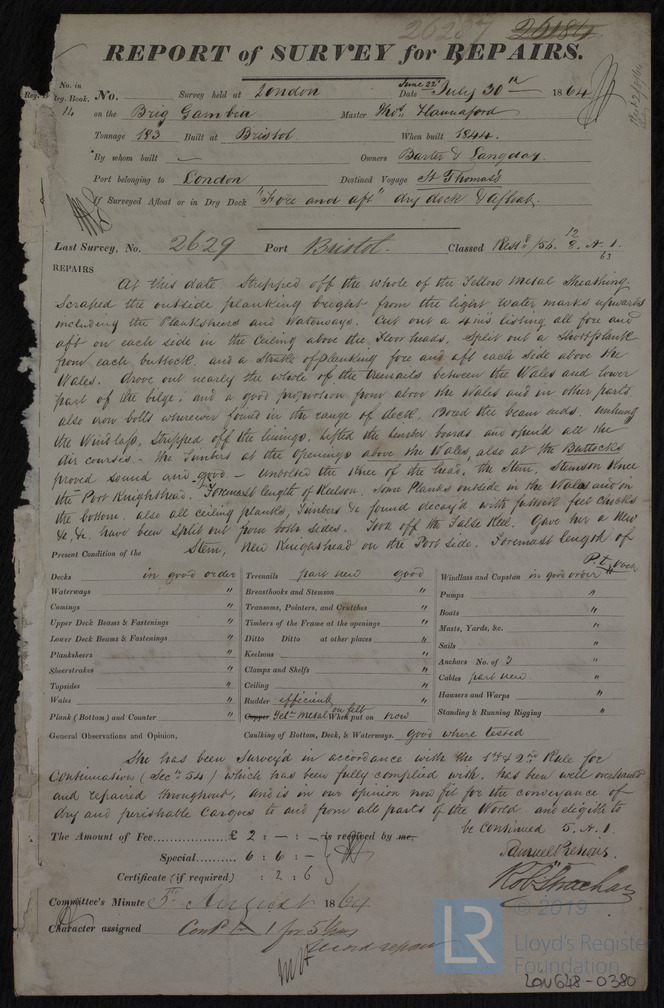 26287 26184
REPORT of SURVEY for REPAIRS.
No. in Reg. Book. No. Survey held at London Date June 22nd July 30th 1864
14 on the Brig Gambia Master Thos. Hannaford
Tonnage 183 Built at Bristol When built 1844.
By whom built — Owners Baxter & Langdon
Port belonging to London Destined Voyage St Thomas's
If Surveyed Afloat or in Dry Dock "Fore and aft" dry dock & afloat.
Last Survey, No. 2629 Port Bristol. Classed /56. 8. A 1.
12
63
REPAIRS
At this date Stripped off the whole of the Yellow Metal Sheathing.
Scraped the outside planking bright from the light water marks upwards
including the Planksheers and Waterways. Cut out a 4 ins listing all fore and
aft on each side in the Ceiling above the Floor heads. Split out a Short plank
from each buttock. and a Strake of planking fore and aft each side above the
Wales. drove out nearly the whole of the treenails between the Wales and lower
part of the bilge, and a good proportion from above the Wales and in other parts
also iron bolts wherever found in the range of deck. Bored the beam ends. unhung
the Windlass, Stripped off the linings. lifted the limber boards and open'd all the
air courses - the Timbers at the openings above the Wales, also at the Buttocks
proved sound and good. - Unbolted the Knee of the head, the Stem, Stemson Knee
the Port Knighthead. Foremost length of Keelson. Some Planks outside in the Wales and in
the bottom. also all ceiling planks, Timbers &c found decay'd with futtock feet Chocks
&c, &c. have been Split out from both sides. Took off the False Keel. Gave her a New
Stem, New Knighthead on the Port side. Foremost length of
P.t. over
Present Condition of the
Decks in good order Treenails part new good Windlass and Capstan in good order
Waterways " Breasthooks and Stemson " Pumps "
Comings " Transoms, Pointers, and Crutches " Boats "
Upper Deck Beams & Fastenings " Timbers of the Frame at the openings " Masts, Yards, &c. "
Lower Deck Beams & Fastenings " Ditto Ditto at other places " Sails "
Planksheers " Keelsons " Anchors No. of 3 "
Sheerstrakes " Clamps and Shelfs " Cables part new "
Topsides " Ceiling " Hausers and Warps "
Wales " Rudder efficient Standing & Running Rigging "
Plank (Bottom) and Counter " Copper Yelw metal on felt When put on now
General Observations and Opinion, Caulking of Bottom, Deck, & Waterways. good where tested
She has been Survey'd in accordance with the 1st & 2nd Rule for
Continuation (Secn 54) which has been fully complied with. has been well overhauled
and repaired throughout, and is in our opinion now fit for the conveyance of
dry and perishable Cargoes to and from all parts of the World and eligible to
be continued 5. A. 1.
The Amount of Fee £ 2 : — : — is received by me,
Special 6 : 6 : —
Certificate (if required) : 2 : 6
Samuel
Robt Strachan
Committee's Minute 5th August 1864
Character assigned Cont A 1 for 5 Yrs
Second repair
LR
© 2019
Lloyd's Register
Foundation
LON648-0380